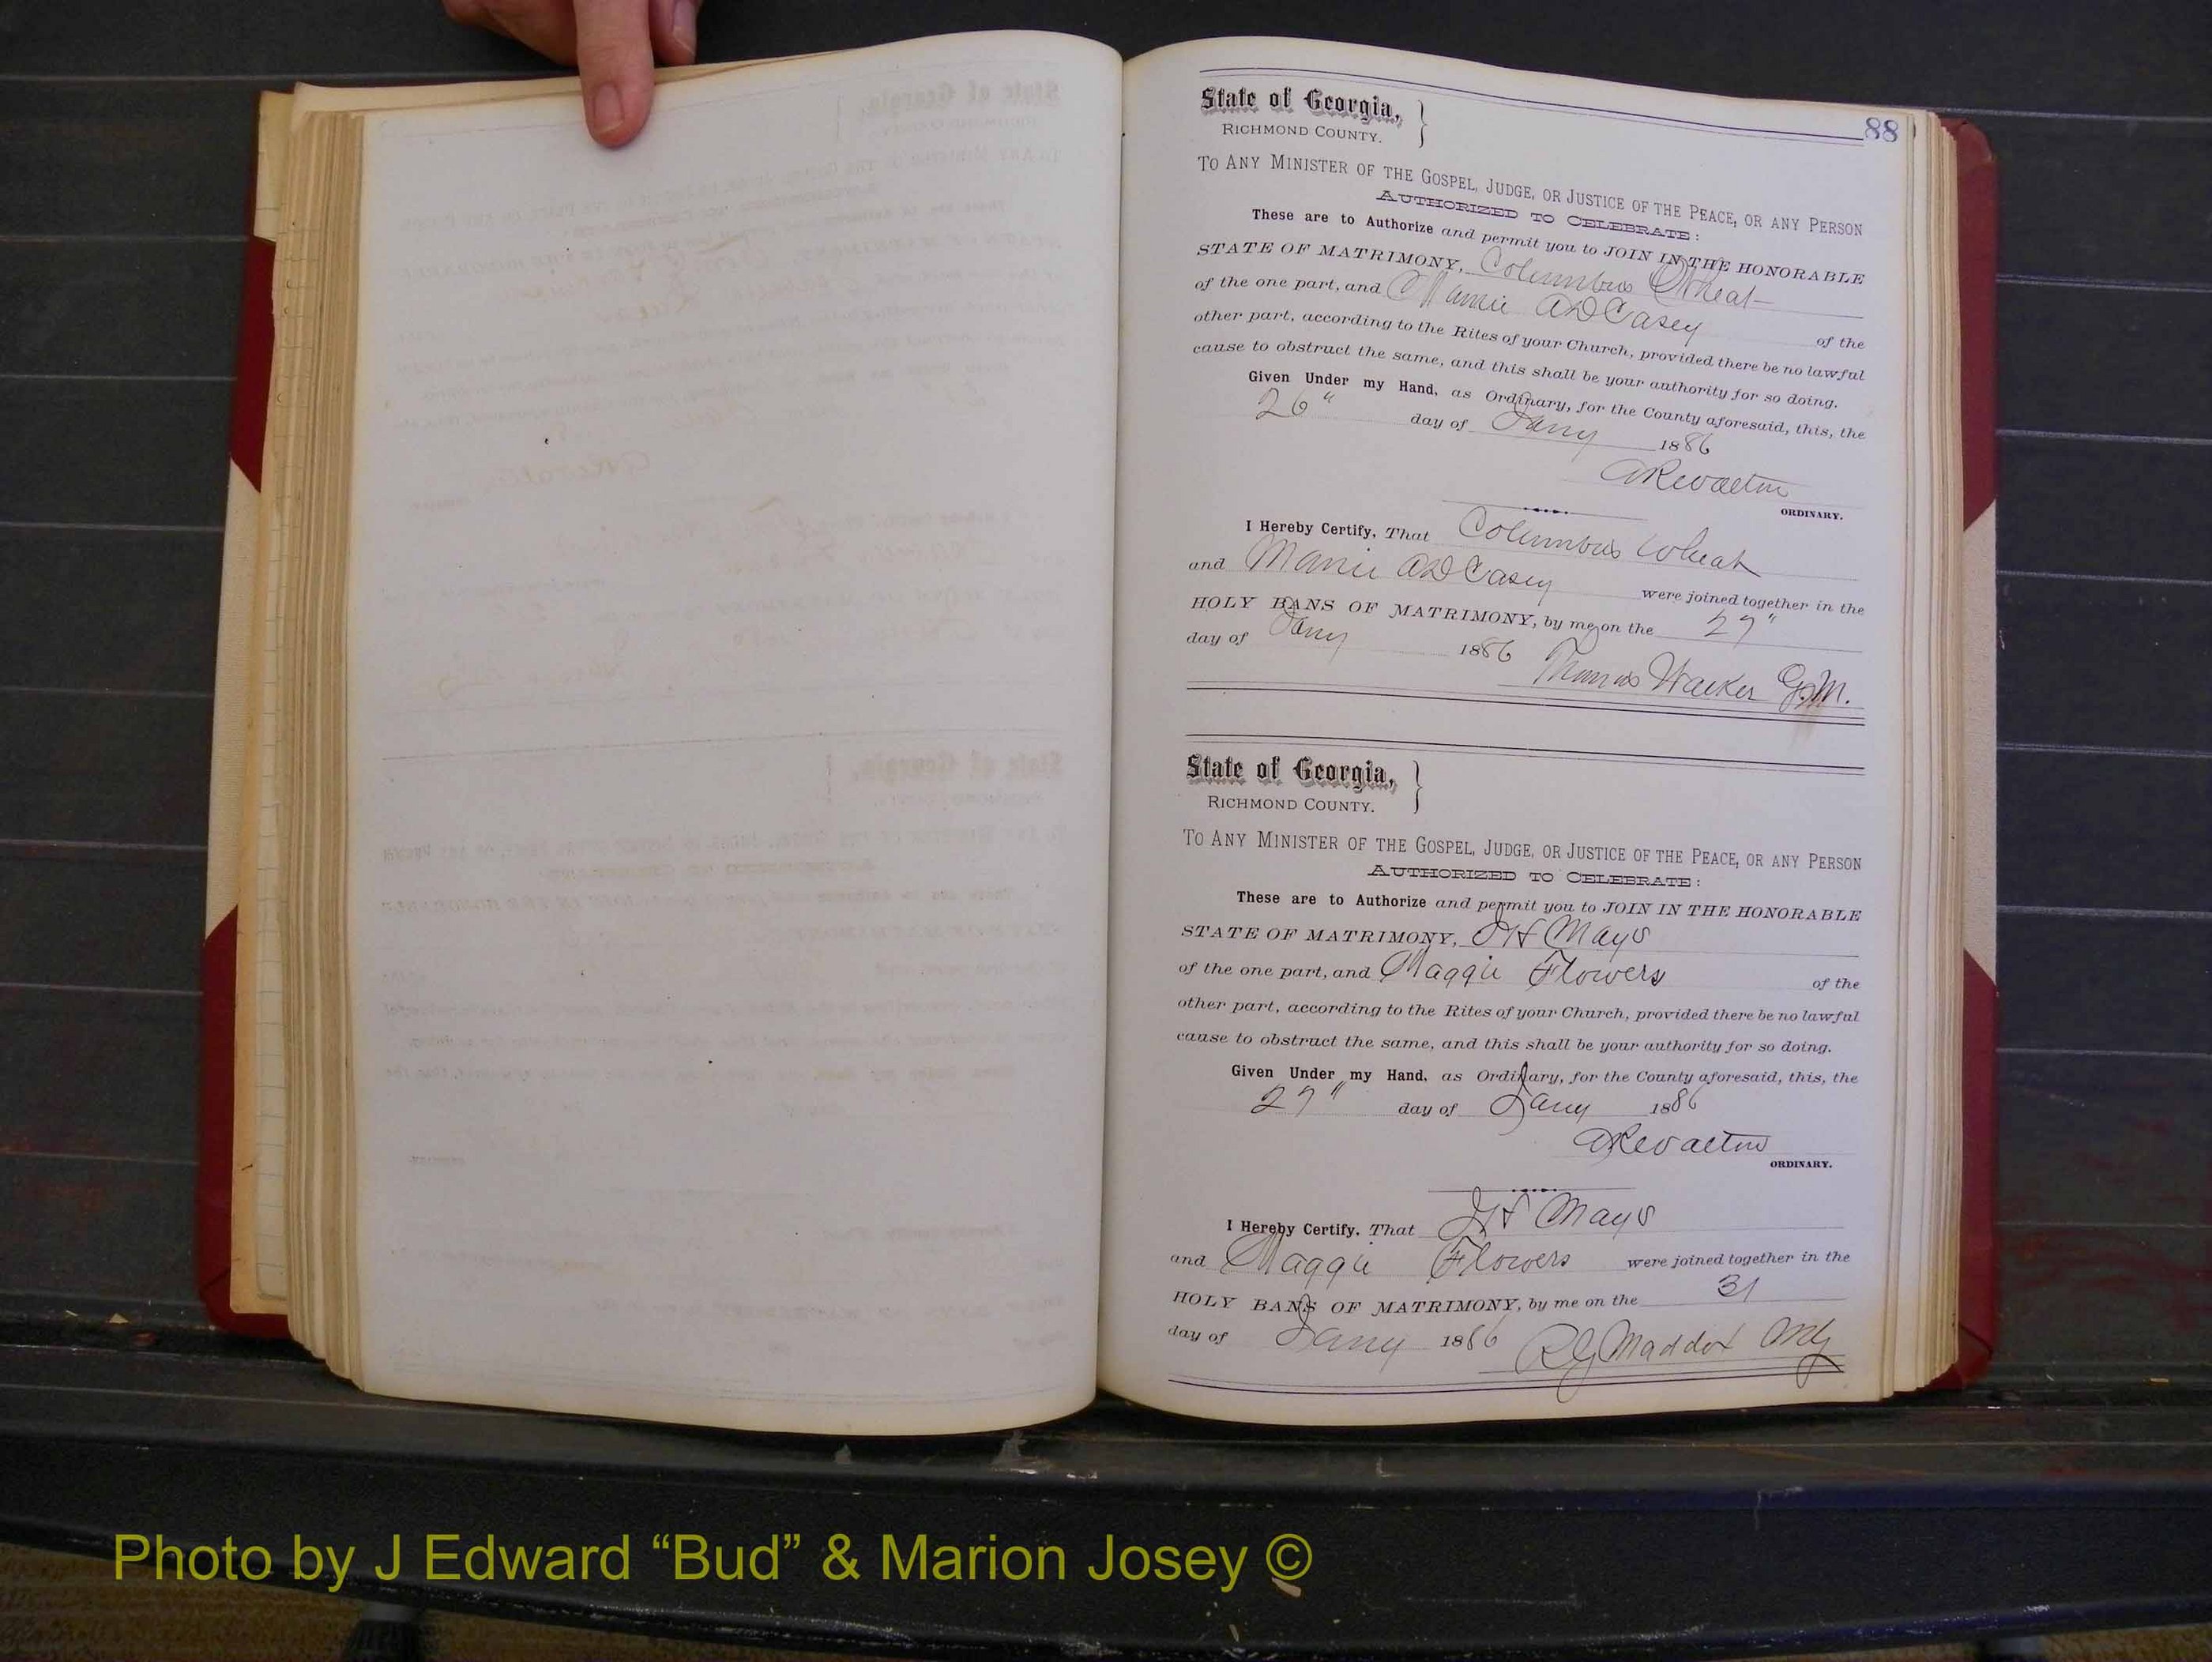 88
State of Georgia,
RICHMOND COUNTY.
TO ANY MINISTER OF THE GOSPEL, JUDGE, OR JUSTICE OF THE PEACE, OR ANY PERSON
AUTHORIZED TO CELEBRATE:
These are to Authorize and permit you to JOIN IN THE HONORABLE
STATE OF MATRIMONY, Columbus Wheat
of the one part, and Mamie AD Casey of the
other part, according to the Rites of your Church, provided there be no lawful
cause to obstruct the same, and this shall be your authority for so doing.
Given Under my Hand, as Ordinary, for the County aforesaid, this, the
26" day of Jany 1886
ARWalton
ORDINARY.
I Hereby Certify, That Columbus Wheat
and Mamie AD Casey were joined together in the
HOLY BANS OF MATRIMONY, by me on the 27"
day of Jany 1886 Thomas Walker G.M.
State of Georgia,
RICHMOND COUNTY.
TO ANY MINISTER OF THE GOSPEL, JUDGE, OR JUSTICE OF THE PEACE, OR ANY PERSON
AUTHORIZED TO CELEBRATE:
These are to Authorize and permit you to JOIN IN THE HONORABLE
STATE OF MATRIMONY, Mays
of the one part, and Maggie Flowers of the
other part, according to the Rites of your Church, provided there be no lawful
cause to obstruct the same, and this shall be your authority for so doing.
Given Under my Hand, as Ordinary, for the County aforesaid, this, the
27" day of Jany 1886
ARWalton
ORDINARY.
I Hereby Certify, That Mays
and Maggie Flowers were joined together in the
HOLY BANS OF MATRIMONY, by me on the 31
day of Jany 1886 Maddox
Photo by J Edward “Bud” & Marion Josey ©